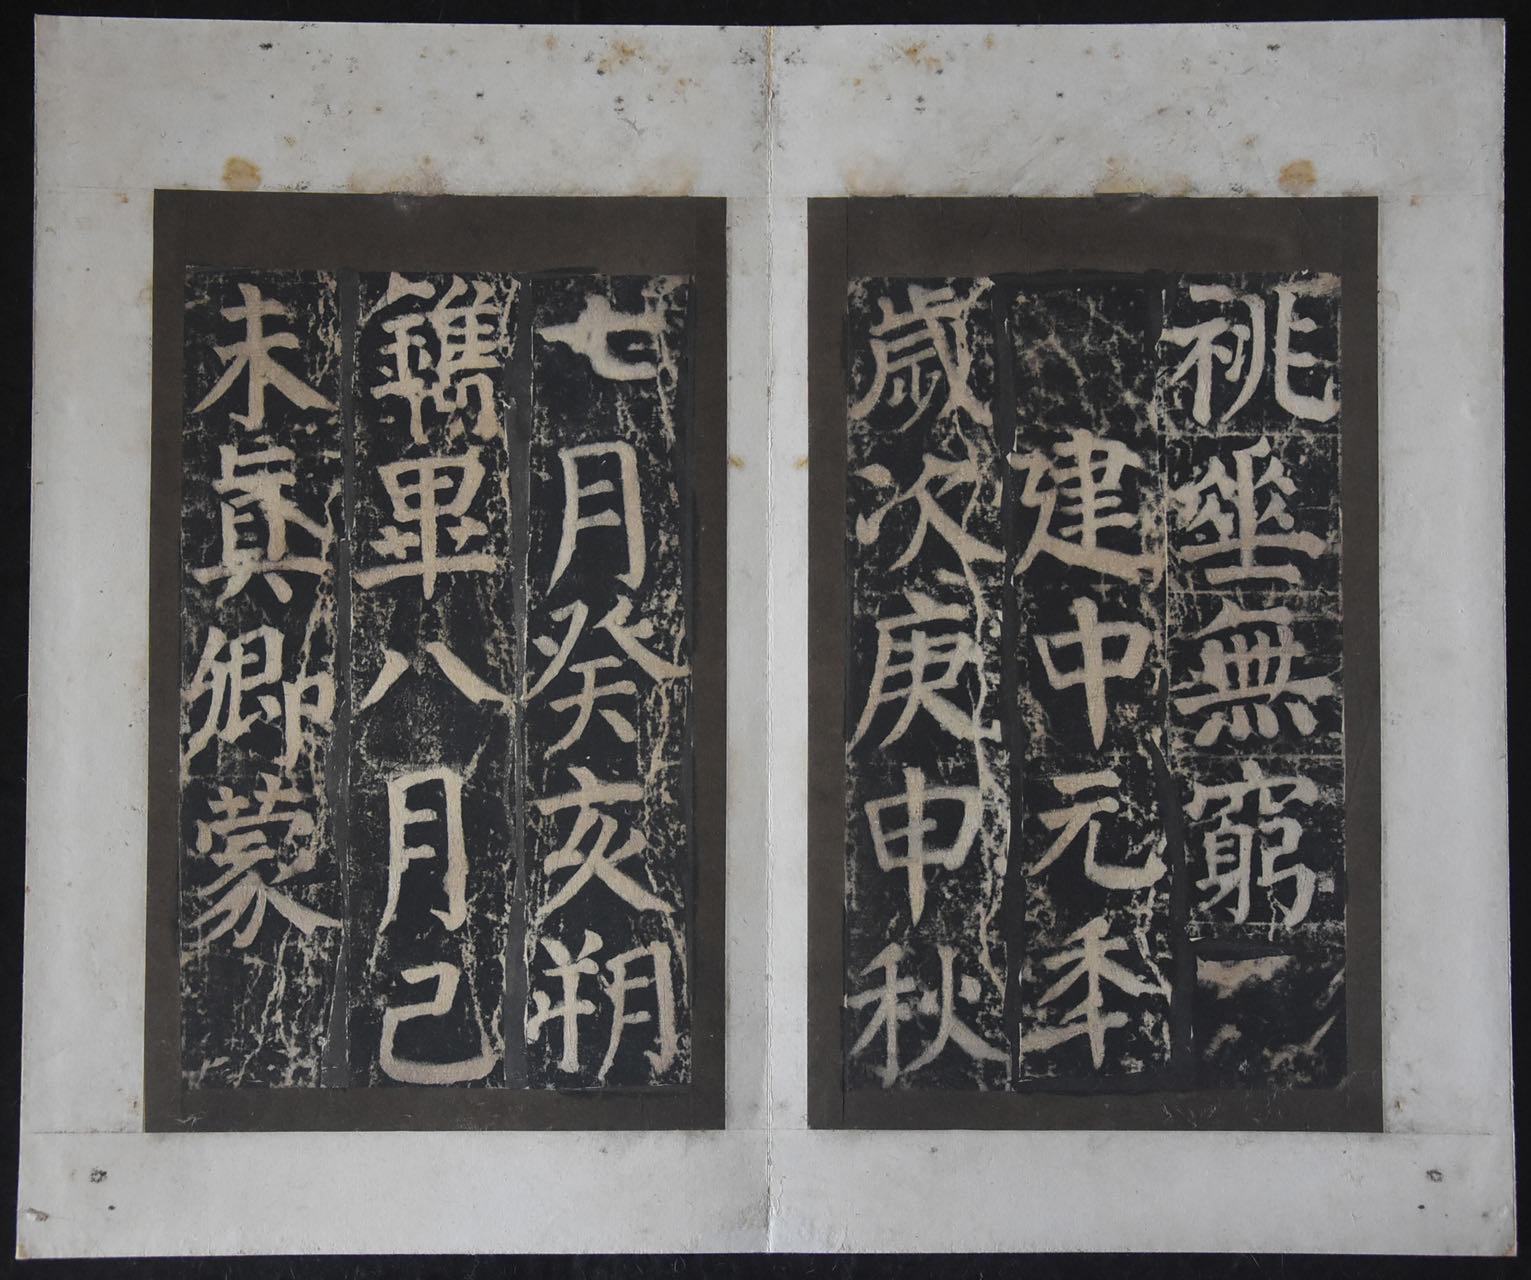 祧垂無窮
建中元年
歲次庚申秋
七月癸亥朔
鐫畢八月己
未真卿蒙